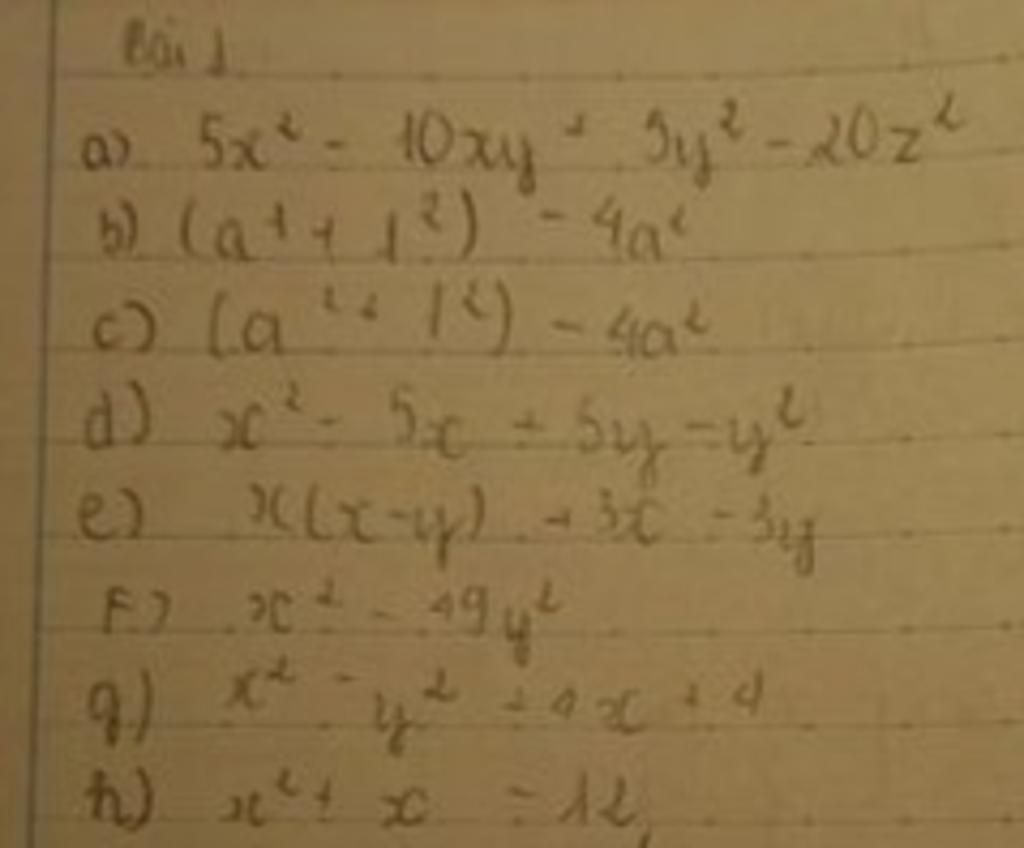 Bài 1
a) 5x² - 10xy + 5y² - 20z²
b) (a⁴ + 1²) - 4a²
c) (a² + 1²) - 4a²
d) x² - 5x + 5y - y²
e) x(x-y) + 3x - 3y
F) x² - 49y²
g) x² - y² + 4x + 4
h) x² + x - 12